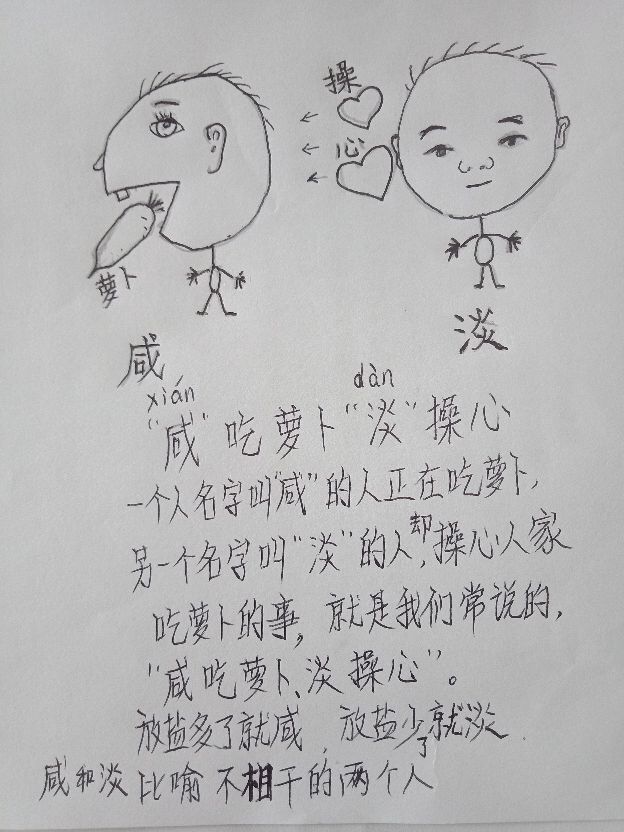 操
心
萝卜
咸
淡
xián
dàn
"咸"吃萝卜"淡"操心
一个人名字叫"咸"的人正在吃萝卜,
另一个名字叫"淡"的人却,操心人家
吃萝卜的事,就是我们常说的,
"咸吃萝卜、淡操心"。
放盐多了就咸,放盐少了就淡.
咸和淡比喻不相干的两个人